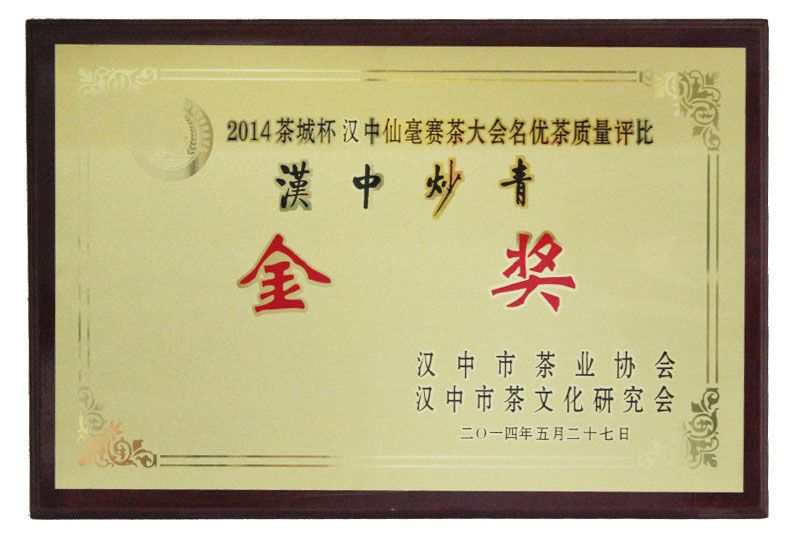 2014茶城杯 汉中仙毫赛茶大会名优茶质量评比
漢中炒青
金奖
汉中市茶业协会
汉中市茶文化研究会
二〇一四年五月二十七日